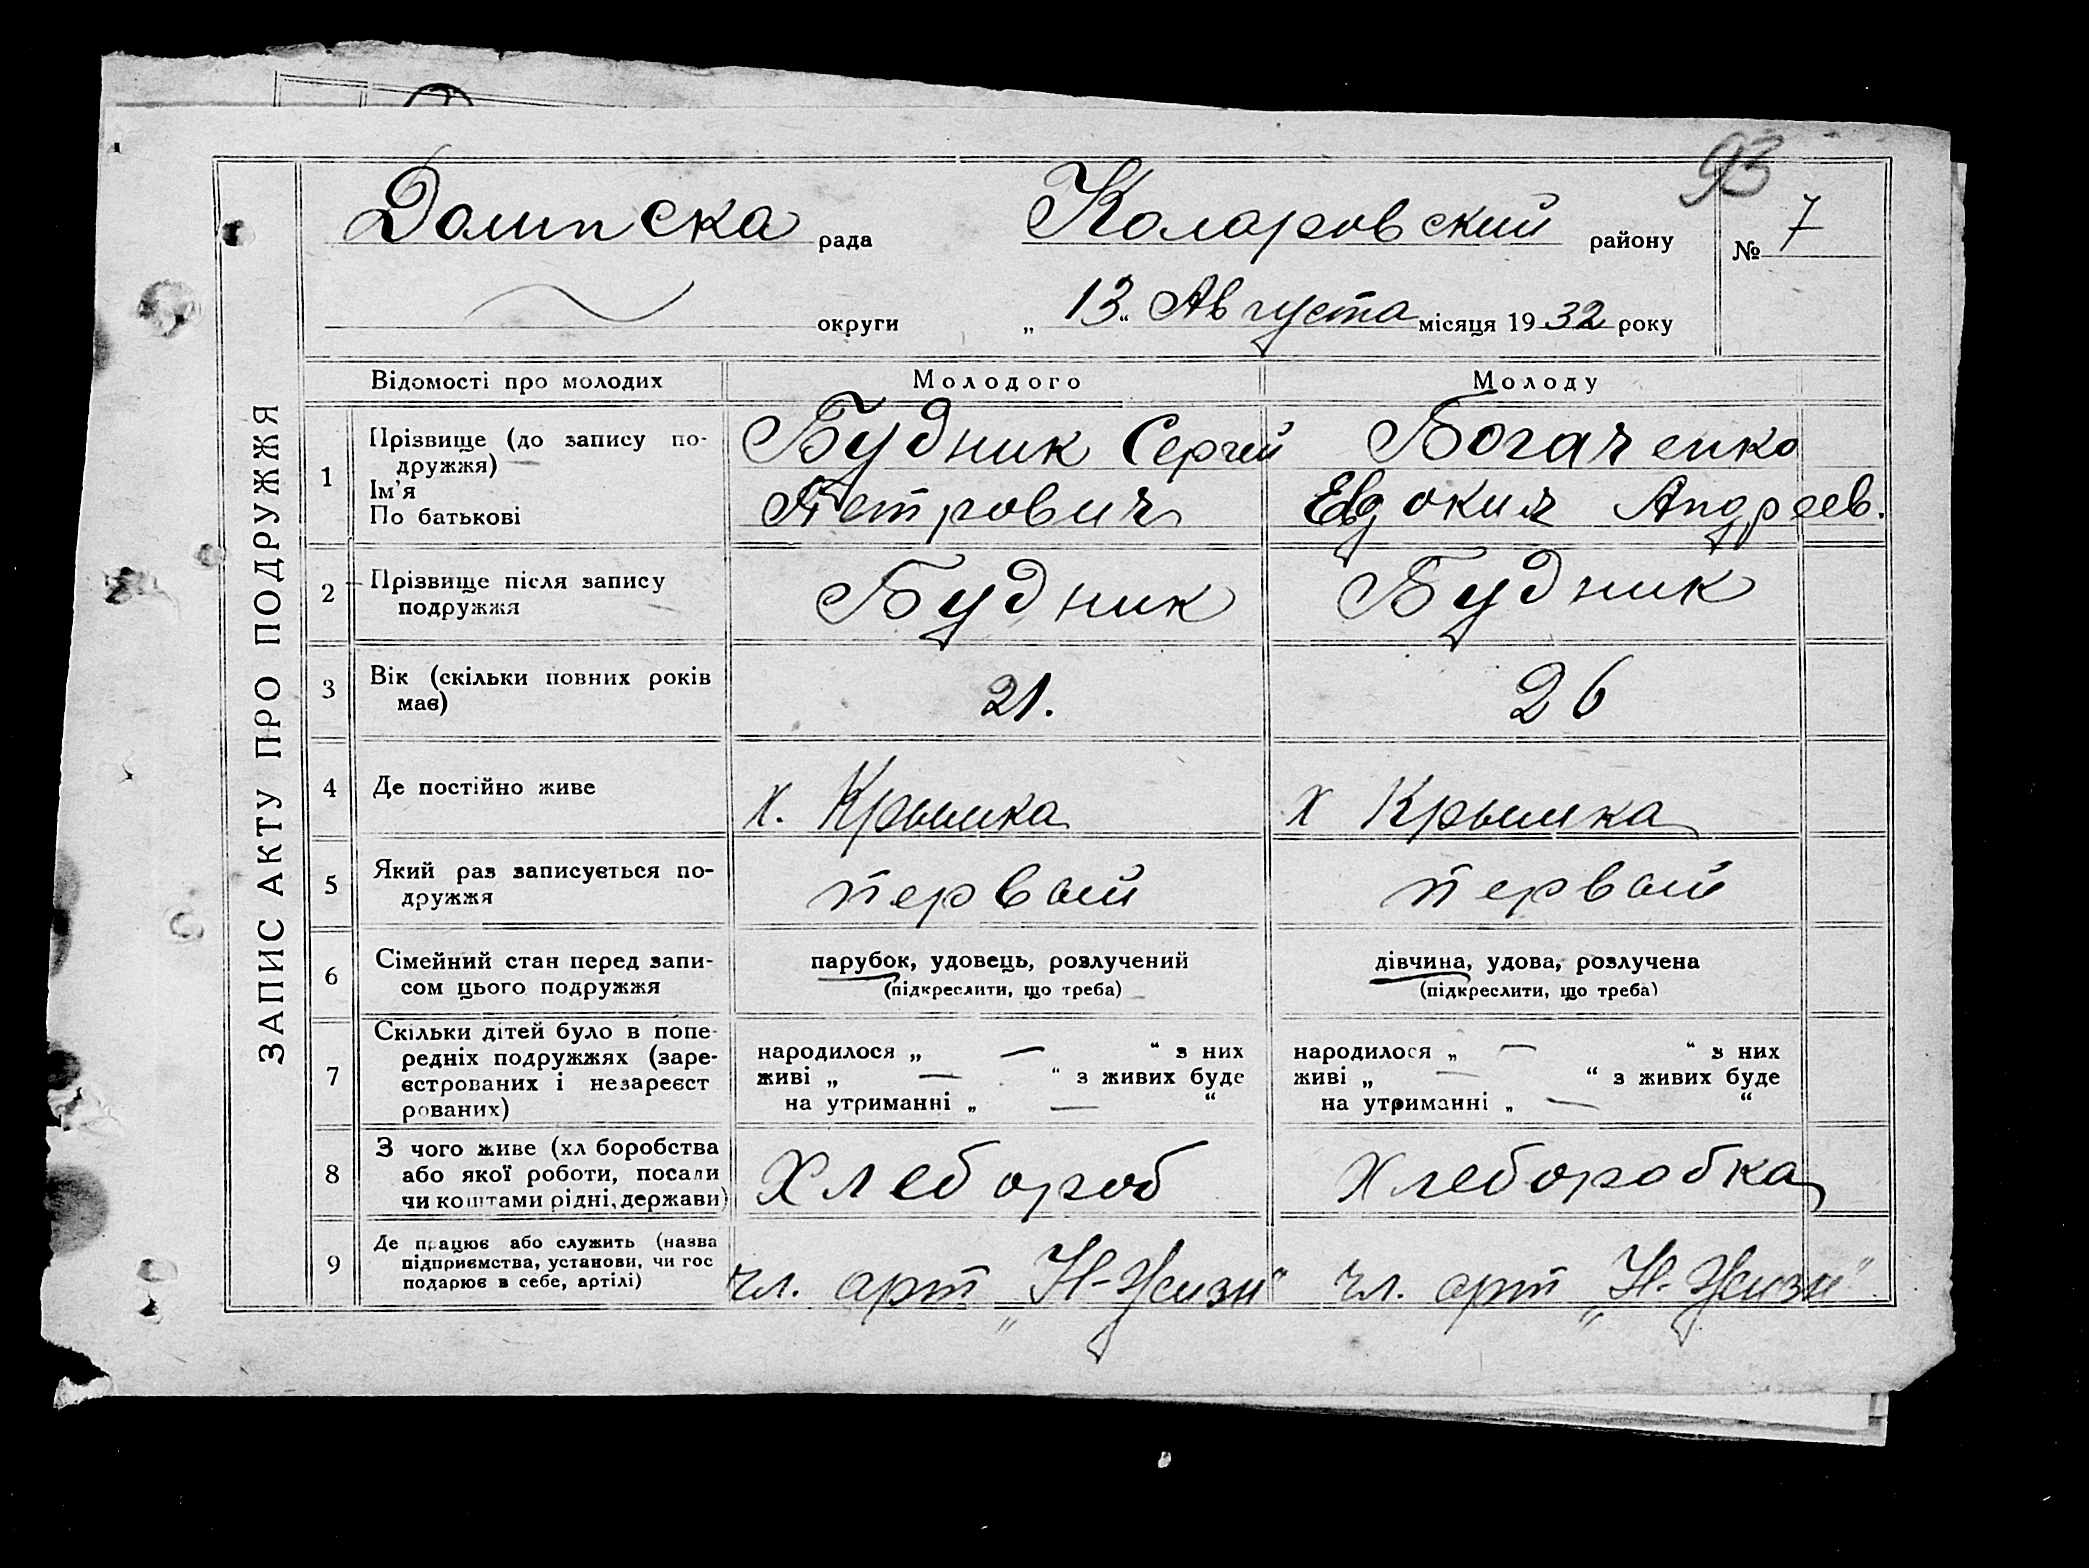 93
Долинска рада Коларовский району № 7
округи „ 13 “ Августа місяця 1932 року
ЗАПИС АКТУ ПРО ПОДРУЖЖЯ
Відомості про молодих Молодого Молоду
1 Прізвище (до запису по-
дружжя)
Ім'я
По батькові
Будник Сергей
Петрович
Богаченко
Евдокия Андреев.
2 Прізвище після запису
подружжя
Будник Будник
3 Вік (скільки повних років
має)
21. 26
4 Де постійно живе х. Крымка х Крымка
5 Який раз записується по-
дружжя
первый первый
6 Сімейний стан перед запи-
сом цього подружжя
парубок, удовець, розлучений
(підкреслити, що треба)
дівчина, удова, розлучена
(підкреслити, що треба)
7 Скільки дітей було в попе-
редніх подружжях (заре-
єстрованих і незареєст
рованих)
народилося „ — “ з них
живі „ — “ з живих буде
на утриманні „ — “
народилося „ — “ з них
живі „ — “ з живих буде
на утриманні „ — “
8 З чого живе (хл боробства
або якої роботи, посади
чи коштами рідні, держави)
Хлебороб Хлеборобка
9 Де працює або служить (назва
підприємства, установи, чи гос
подарює в себе, артілі)
чл. арт „Н-Жизн“ чл. арт „Н-Жизн“